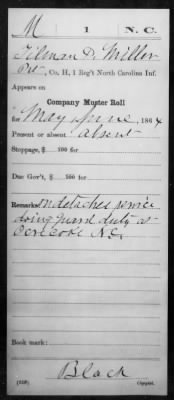 M 1 N.C.
Tilman D. Miller
Pvt, Co. H, 1 Reg't North Carolina Inf.
Appears on
Company Muster Roll
for May & June, 1864
Present or absent absent
Stoppage, $ 100 for
Due Gov't, $ 100 for
Remarks: On detached service
doing guard duty at
Ocracoke N.C.
Book mark:
Black
(858) Copyist.